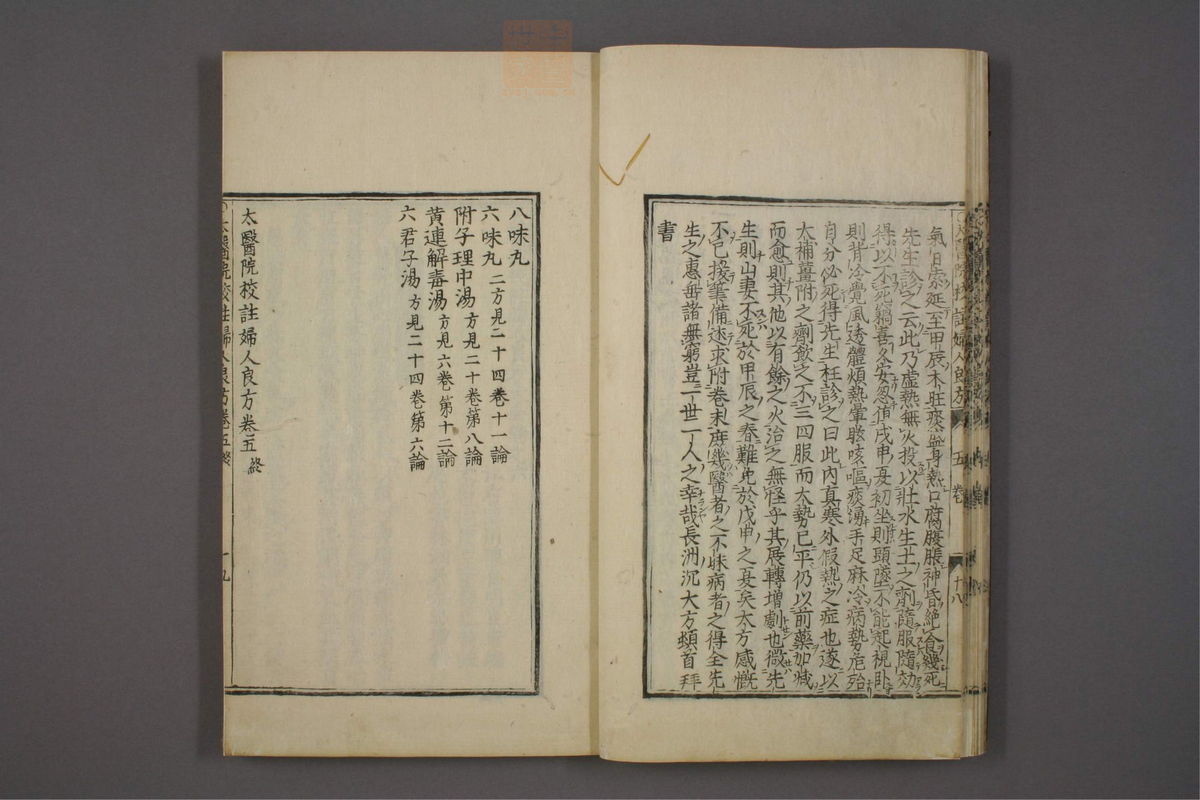 氣日索延至甲辰木旺痰盛身熱口腐腹脹神昏絶食幾死
先生診之云此乃虚熱無火投以壯水生土之劑隨服隨効
得以不死竊喜多安忽值戌申夏初坐則頭墜不能起視卧
則背冷覺風透體煩熱暈眩咳嘔痰湧手足麻冷病勢危殆
自分必死得先生枉診之曰此内真寒外假熱之症也遂以
太補薑附之劑飲之不三四服而太勢已平仍以前藥加減
而愈則其他以有餘之火治之無怪乎其展轉增劇也微先
生則山妻不死於甲辰之春難免於戊申之夏矣太方感慨
不已援筆備述求附卷末庶幾醫者之不昧病者之得全先
生之惠垂諸無窮豈一世一人之幸哉長洲沉大方頓首拜
書
太醫院校註婦人良方 五卷 十八
八味丸
六味丸 二方見二十四卷十一論
附子理中湯 方見二十卷第八論
黄連解毒湯 方見六卷第十二論
六君子湯 方見二十四卷第六論
太醫院校註婦人良方卷五終
十九